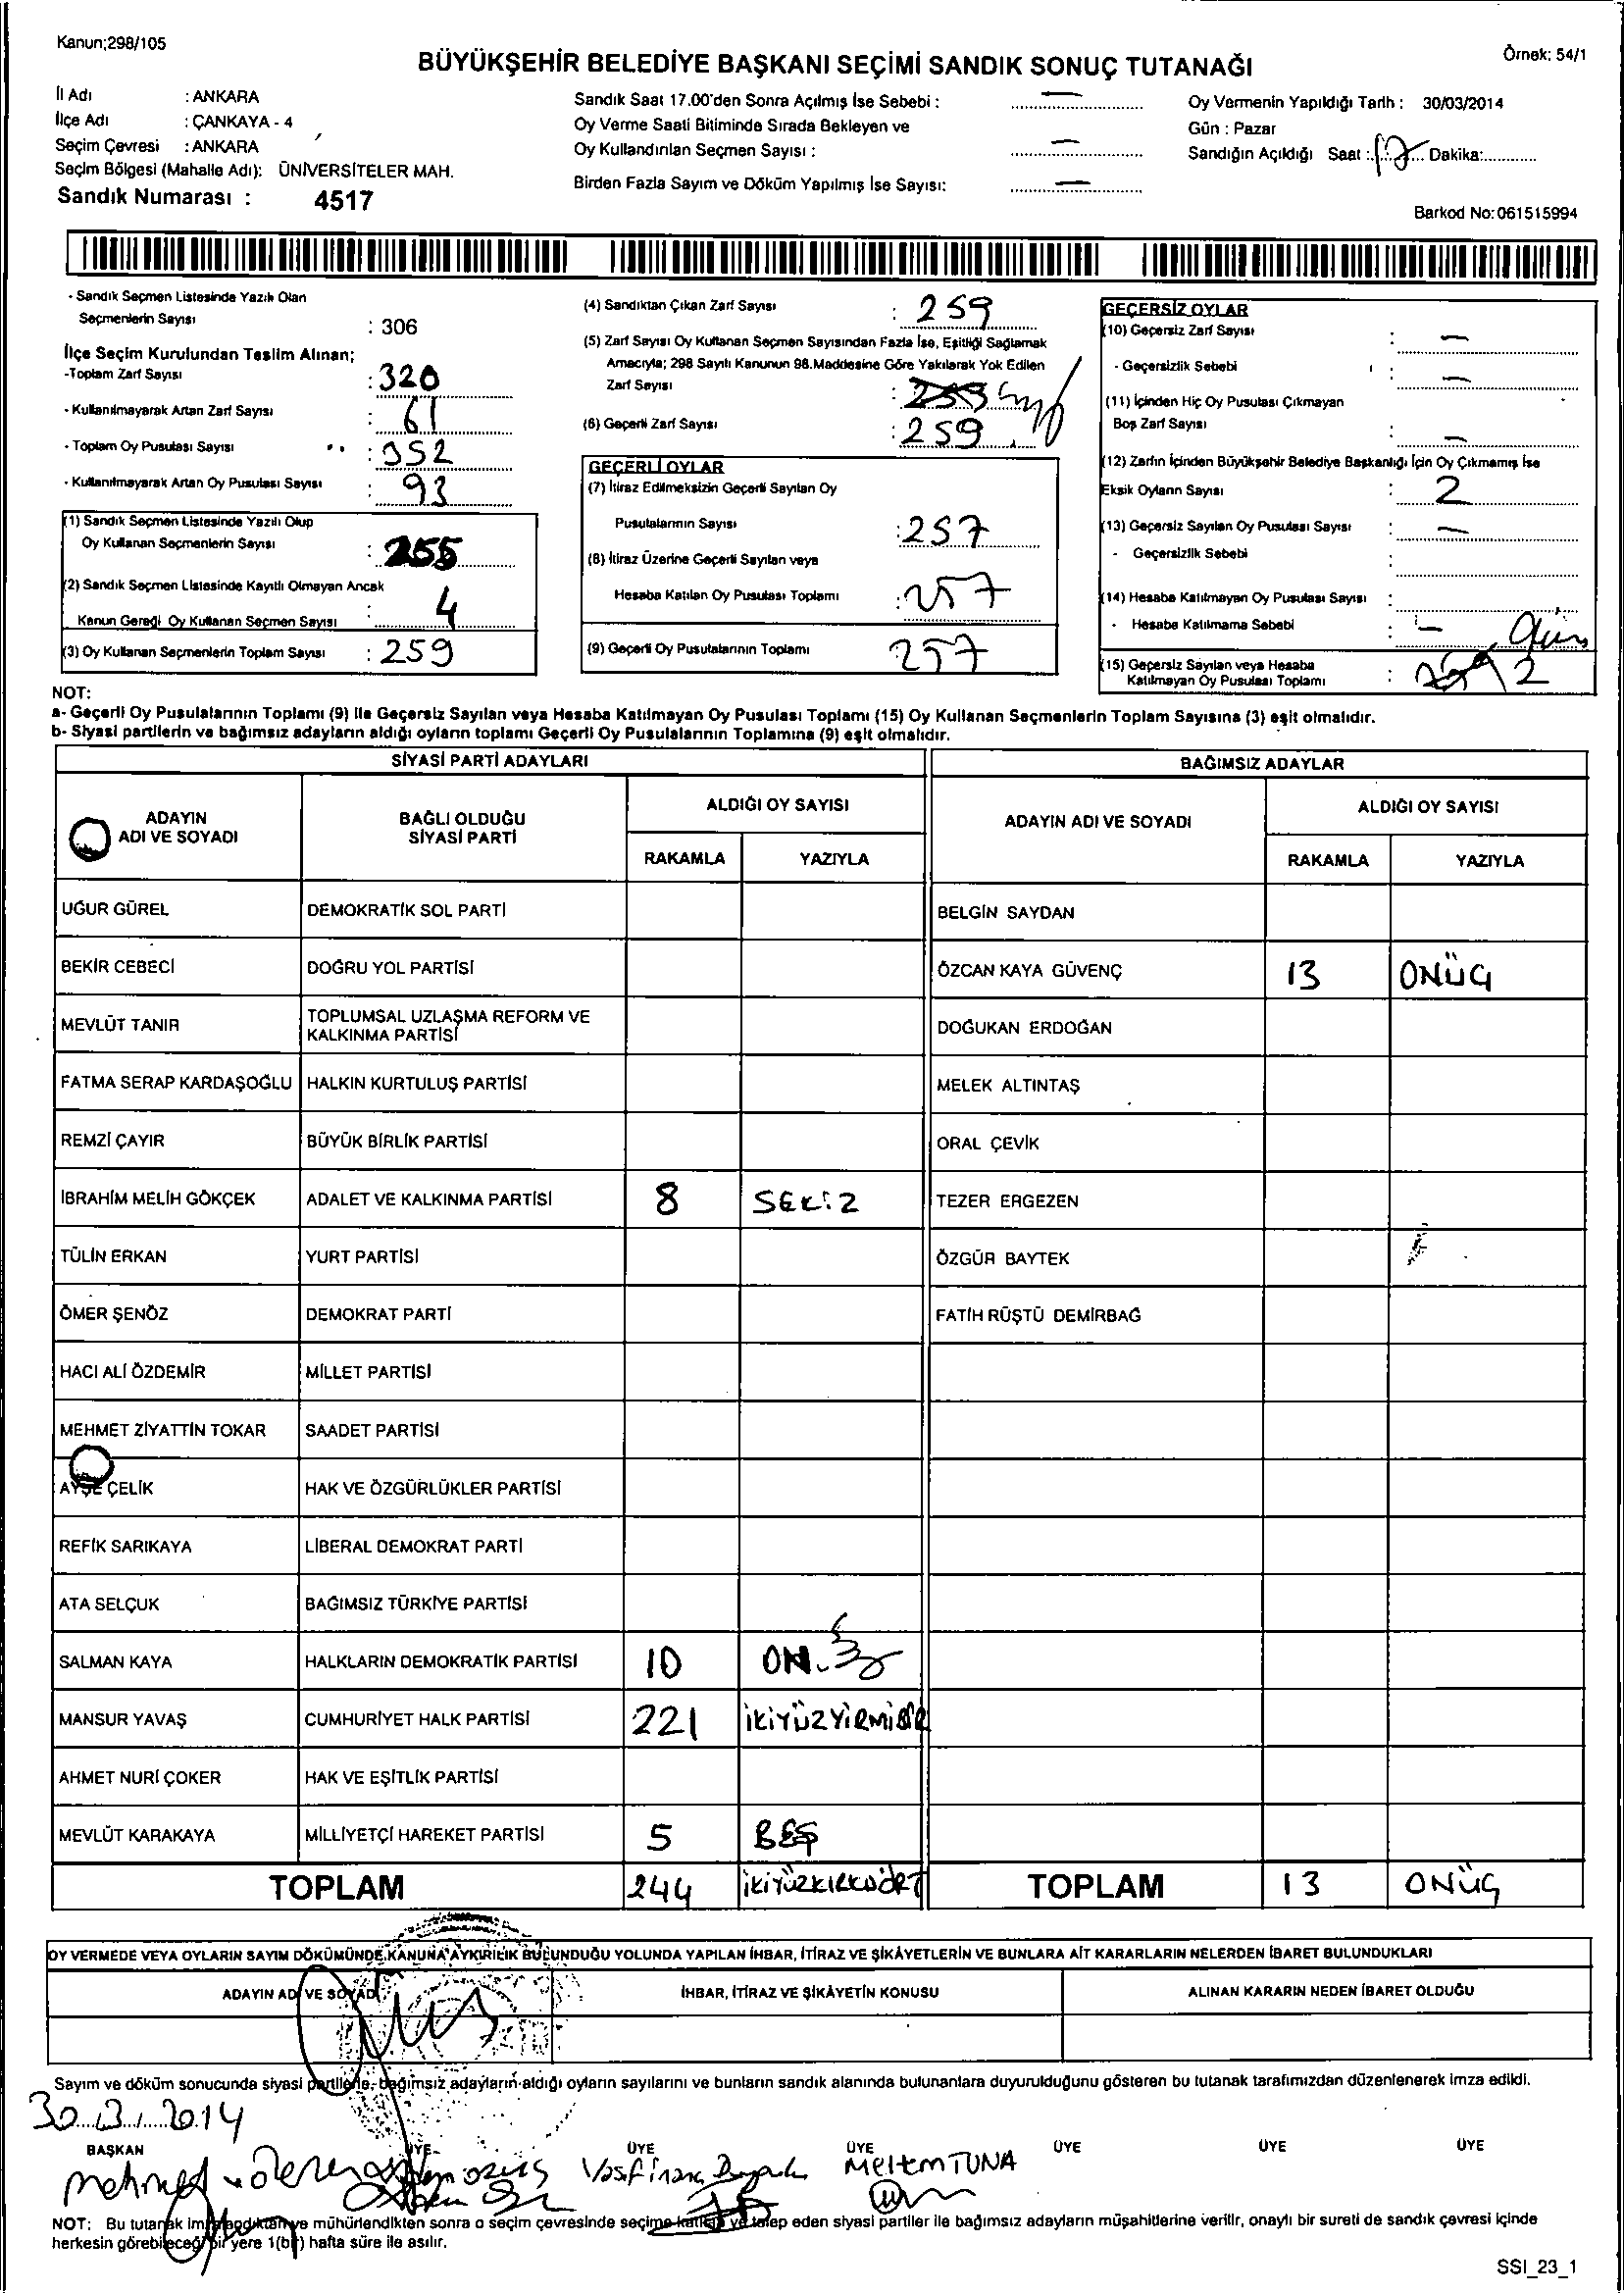 Kanun;298/105
Örnek: 54/1
BÜYÜKŞEHİR BELEDİYE BAŞKANI SEÇİMİ SANDIK SONUÇ TUTANAĞI
İl Adı : ANKARA
İlçe Adı : ÇANKAYA - 4
Seçim Çevresi : ANKARA
Seçim Bölgesi (Mahalle Adı): ÜNİVERSİTELER MAH.
Sandık Numarası : 4517
Sandık Saat 17.00'den Sonra Açılmış İse Sebebi : —
Oy Verme Saati Bitiminde Sırada Bekleyen ve
Oy Kullandırılan Seçmen Sayısı : —
Birden Fazla Sayım ve Döküm Yapılmış İse Sayısı: —
Oy Vermenin Yapıldığı Tarih : 30/03/2014
Gün : Pazar
Sandığın Açıldığı Saat : 17 Dakika:............
Barkod No:061515994
- Sandık Seçmen Listesinde Yazılı Olan
Seçmenlerin Sayısı : 306
İlçe Seçim Kurulundan Teslim Alınan;
-Toplam Zarf Sayısı : 320
- Kullanılmayarak Artan Zarf Sayısı : 61
- Toplam Oy Pusulası Sayısı : 352
- Kullanılmayarak Artan Oy Pusulası Sayısı : 93
(1) Sandık Seçmen Listesinde Yazılı Olup
Oy Kullanan Seçmenlerin Sayısı : 255
(2) Sandık Seçmen Listesinde Kayıtlı Olmayan Ancak
Kanun Gereği Oy Kullanan Seçmen Sayısı : 4
(3) Oy Kullanan Seçmenlerin Toplam Sayısı : 259
(4) Sandıktan Çıkan Zarf Sayısı : 259
(5) Zarf Sayısı Oy Kullanan Seçmen Sayısından Fazla İse, Eşitliği Sağlamak
Amacıyla; 298 Sayılı Kanunun 98.Maddesine Göre Yakılarak Yok Edilen
Zarf Sayısı :
(6) Geçerli Zarf Sayısı : 259
GEÇERLİ OYLAR
(7) İtiraz Edilmeksizin Geçerli Sayılan Oy
Pusulalarının Sayısı : 257
(8) İtiraz Üzerine Geçerli Sayılan veya
Hesaba Katılan Oy Pusulası Toplamı : 257
(9) Geçerli Oy Pusulalarının Toplamı 257
GEÇERSİZ OYLAR
(10) Geçersiz Zarf Sayısı : —
- Geçersizlik Sebebi : —
(11) İçinden Hiç Oy Pusulası Çıkmayan
Boş Zarf Sayısı : —
(12) Zarfın İçinden Büyükşehir Belediye Başkanlığı İçin Oy Çıkmamış İse
Eksik Oyların Sayısı : 2
(13) Geçersiz Sayılan Oy Pusulası Sayısı : —
- Geçersizlik Sebebi :
(14) Hesaba Katılmayan Oy Pusulası Sayısı :
- Hesaba Katılmama Sebebi : —
(15) Geçersiz Sayılan veya Hesaba
Katılmayan Oy Pusulası Toplamı : 2
NOT:
a- Geçerli Oy Pusulalarının Toplamı (9) ile Geçersiz Sayılan veya Hesaba Katılmayan Oy Pusulası Toplamı (15) Oy Kullanan Seçmenlerin Toplam Sayısına (3) eşit olmalıdır.
b- Siyasi partilerin ve bağımsız adayların aldığı oyların toplamı Geçerli Oy Pusulalarının Toplamına (9) eşit olmalıdır.
SİYASİ PARTİ ADAYLARI
BAĞIMSIZ ADAYLAR
ADAYIN ADI VE SOYADI
BAĞLI OLDUĞU SİYASİ PARTİ
ALDIĞI OY SAYISI
RAKAMLA YAZIYLA
ADAYIN ADI VE SOYADI
ALDIĞI OY SAYISI
RAKAMLA YAZIYLA
UĞUR GÜREL DEMOKRATİK SOL PARTİ BELGİN SAYDAN
BEKİR CEBECİ DOĞRU YOL PARTİSİ ÖZCAN KAYA GÜVENÇ 13 ONÜÇ
MEVLÜT TANIR TOPLUMSAL UZLAŞMA REFORM VE KALKINMA PARTİSİ DOĞUKAN ERDOĞAN
FATMA SERAP KARDAŞOĞLU HALKIN KURTULUŞ PARTİSİ MELEK ALTINTAŞ
REMZİ ÇAYIR BÜYÜK BİRLİK PARTİSİ ORAL ÇEVİK
İBRAHİM MELİH GÖKÇEK ADALET VE KALKINMA PARTİSİ 8 SEKİZ TEZER ERGEZEN
TÜLİN ERKAN YURT PARTİSİ ÖZGÜR BAYTEK
ÖMER ŞENÖZ DEMOKRAT PARTİ FATİH RÜŞTÜ DEMİRBAĞ
HACI ALİ ÖZDEMİR MİLLET PARTİSİ
MEHMET ZİYATTİN TOKAR SAADET PARTİSİ
AYŞE ÇELİK HAK VE ÖZGÜRLÜKLER PARTİSİ
REFİK SARIKAYA LİBERAL DEMOKRAT PARTİ
ATA SELÇUK BAĞIMSIZ TÜRKİYE PARTİSİ
SALMAN KAYA HALKLARIN DEMOKRATİK PARTİSİ 10 ON
MANSUR YAVAŞ CUMHURİYET HALK PARTİSİ 221 İKİYÜZYİRMİBİR
AHMET NURİ ÇOKER HAK VE EŞİTLİK PARTİSİ
MEVLÜT KARAKAYA MİLLİYETÇİ HAREKET PARTİSİ 5 BEŞ
TOPLAM 244 İKİYÜZKIRKDÖRT TOPLAM 13 ONÜÇ
OY VERMEDE VEYA OYLARIN SAYIM DÖKÜMÜNDE KANUNA AYKIRILIK BULUNDUĞU YOLUNDA YAPILAN İHBAR, İTİRAZ VE ŞİKÂYETLERİN VE BUNLARA AİT KARARLARIN NELERDEN İBARET BULUNDUKLARI
ADAYIN ADI VE SOYADI İHBAR, İTİRAZ VE ŞİKÂYETİN KONUSU ALINAN KARARIN NEDEN İBARET OLDUĞU
Sayım ve döküm sonucunda siyasi partilerle, bağımsız adayların aldığı oyların sayılarını ve bunların sandık alanında bulunanlara duyurulduğunu gösteren bu tutanak tarafımızdan düzenlenerek imza edildi.
30.../3.../...2014
BAŞKAN ÜYE ÜYE ÜYE ÜYE ÜYE ÜYE
Mehmet Meltem TUNA
NOT: Bu tutanak imzalandıktan ve mühürlendikten sonra o seçim çevresinde seçime katılan ve talep eden siyasi partiler ile bağımsız adayların müşahitlerine verilir, onaylı bir sureti de sandık çevresi içinde
herkesin görebileceği bir yere 1(bir) hafta süre ile asılır.
SSI_23_1